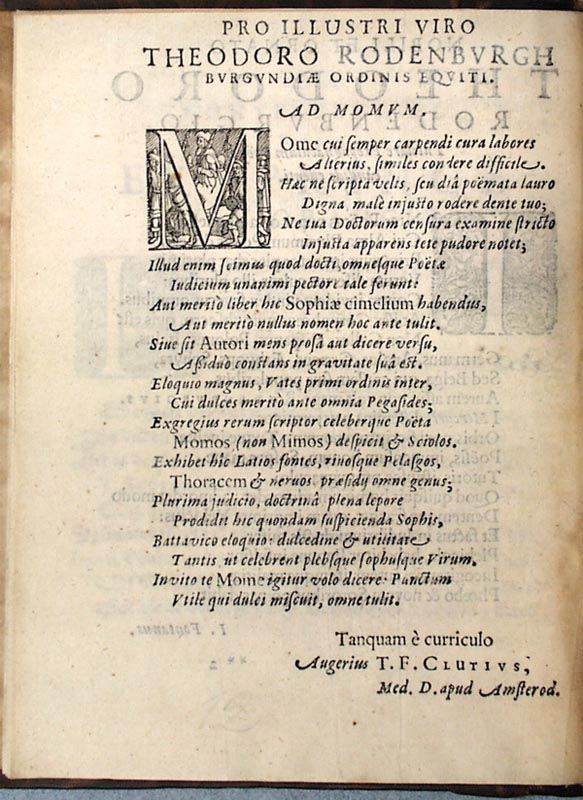 PRO ILLUSTRI VIRO
THEODORO RODENBVRGH
BVRGVNDIÆ ORDINIS EQVITI.
AD MOMVM.
MOme cui ſemper carpendi cura labores
Alterius, ſimiles condere difficile.
Hæc nè ſcripta velis, ſeu diâ poëmata lauro
Digna, malè injuſto rodere dente tuo;
Ne tua Doctorum cenſura examine ſtricto
Injuſta apparens tete pudore notet;
Illud enim ſcimus quod docti, omneſque Poëtæ
Iudicium unanimi pectore tale ferunt:
Aut meritò liber hic Sophiæ cimelium habendus,
Aut meritò nullus nomen hoc ante tulit.
Siue ſit Autori mens proſâ aut dicere verſu,
Aßiduò conſtans in gravitate ſuâ eſt.
Eloquio magnus, Vates primi ordinis inter,
Cui dulces meritò ante omnia Pegaſides;
Exgregius rerum ſcriptor, celeberque Poëta
Momos (non Mimos) deſpicit & Sciolos.
Exhibet hîc Latios fontes, rivoſque Pelaſgos,
Thoracem & nervos, præſidÿ omne genus;
Plurima judicio, doctrinâ plena lepore
Prodidit hic quondam ſuſpicienda Sophis,
Battavico eloquio: dulcedine & utilitate
Tantis, ut celebrent plebſque ſophuſque Virum.
Invito te Mome igitur volo dicere: Punctum
Vtile qui dulci miſcuit, omne tulit.
Tanquam è curriculo
Augerius T. F. CLUTIVS,
Med. D. apud Amſterod.